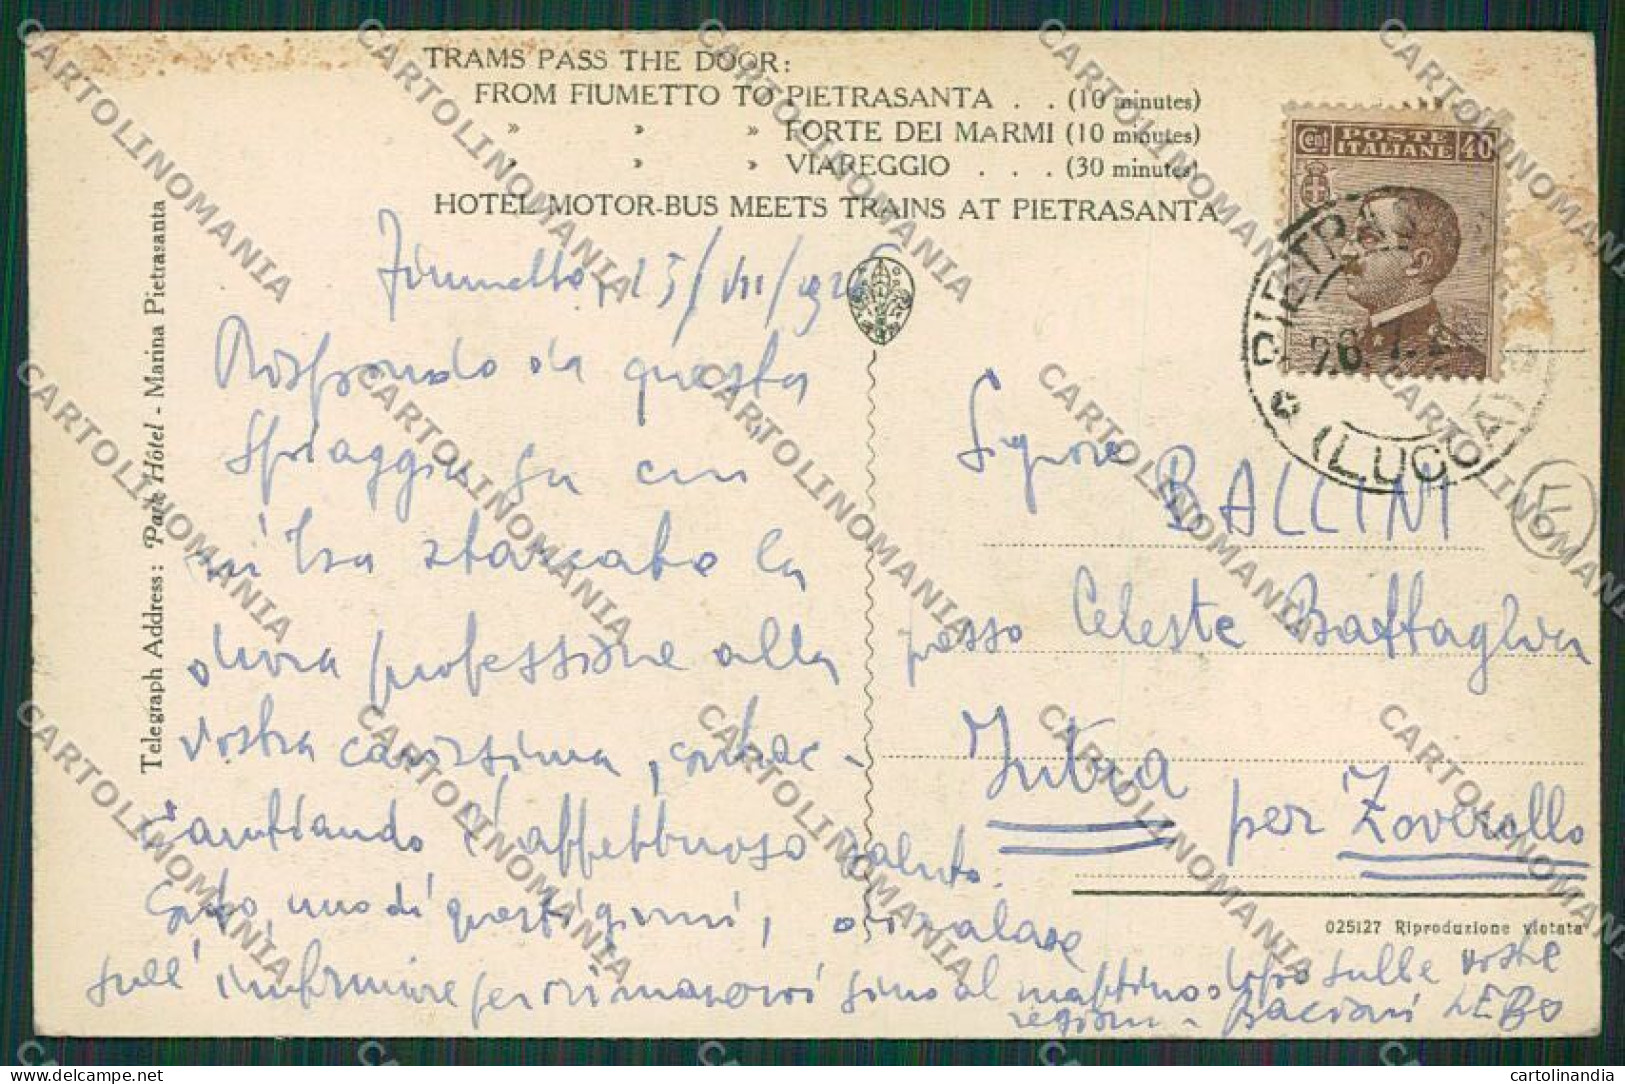 TRAMS PASS THE DOOR:
FROM FIUMETTO TO PIETRASANTA . . (10 minutes)
» » » FORTE DEI MARMI (10 minutes)
» » » VIAREGGIO . . . (30 minutes)
HOTEL MOTOR-BUS MEETS TRAINS AT PIETRASANTA
Telegraph Address: Park Hôtel - Marina Pietrasanta
Cent POSTE ITALIANE 40
PIETRAS
(LUCCA)
Fiumetto, 25/VII/192
Rispondo da questa
spiaggia su cui
mi ha staccato la
dura professione alla
vostra carissima, contrac-
cambiando l'affettuoso saluto.
Credo, uno di questi giorni,
sull' per rimanervi fino al mattino dopo sulle vostre
regioni - Baciani LEBO
Signore
BALLINI
presso Celeste Battaglia
Intra per Zoverallo
025127 Riproduzione vietata
CARTOLINOMANIA
delcampe.net
cartolinandia